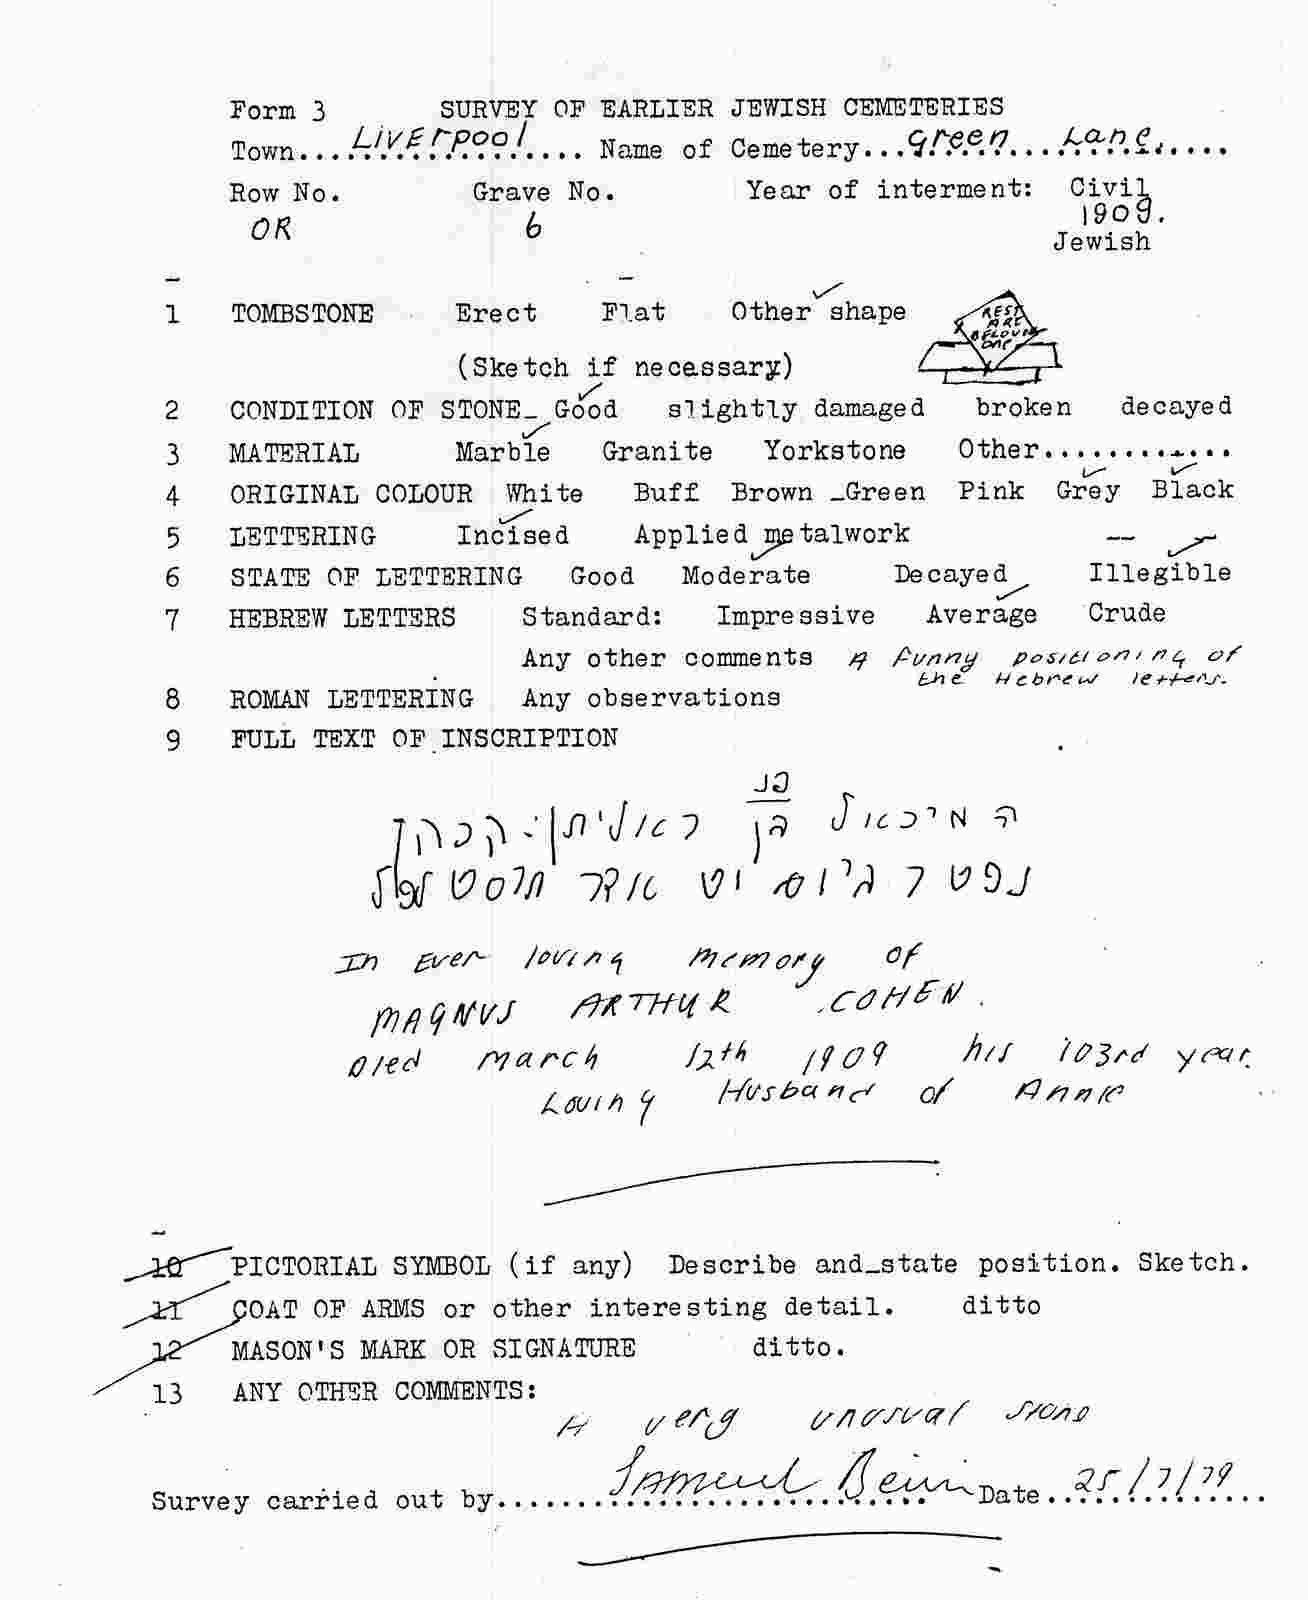 Form 3 SURVEY OF EARLIER JEWISH CEMETERIES
Town....Liverpool.... Name of Cemetery...Green Lane.....
Row No. Grave No. Year of interment: Civil
OR 6 1909.
Jewish
1 TOMBSTONE Erect Flat Other shape
REST
ARE
BELOVED
ONE
(Sketch if necessary)
2 CONDITION OF STONE Good slightly damaged broken decayed
3 MATERIAL Marble Granite Yorkstone Other............
4 ORIGINAL COLOUR White Buff Brown Green Pink Grey Black
5 LETTERING Incised Applied metalwork
6 STATE OF LETTERING Good Moderate Decayed Illegible
7 HEBREW LETTERS Standard: Impressive Average Crude
Any other comments A funny positioning of
the Hebrew letters.
8 ROMAN LETTERING Any observations
9 FULL TEXT OF INSCRIPTION
פנ
ה מיכאל בן הכהן
נפטר ביום יט אדר תרסט לפל
In Ever loving memory of
MAGNUS ARTHUR COHEN.
Died march 12th 1909 his 103rd year.
Loving Husband of Annie
10 PICTORIAL SYMBOL (if any) Describe and state position. Sketch.
11 COAT OF ARMS or other interesting detail. ditto
12 MASON'S MARK OR SIGNATURE ditto.
13 ANY OTHER COMMENTS:
A very unusual stone
Survey carried out by....Samuel....Date...25/7/79....